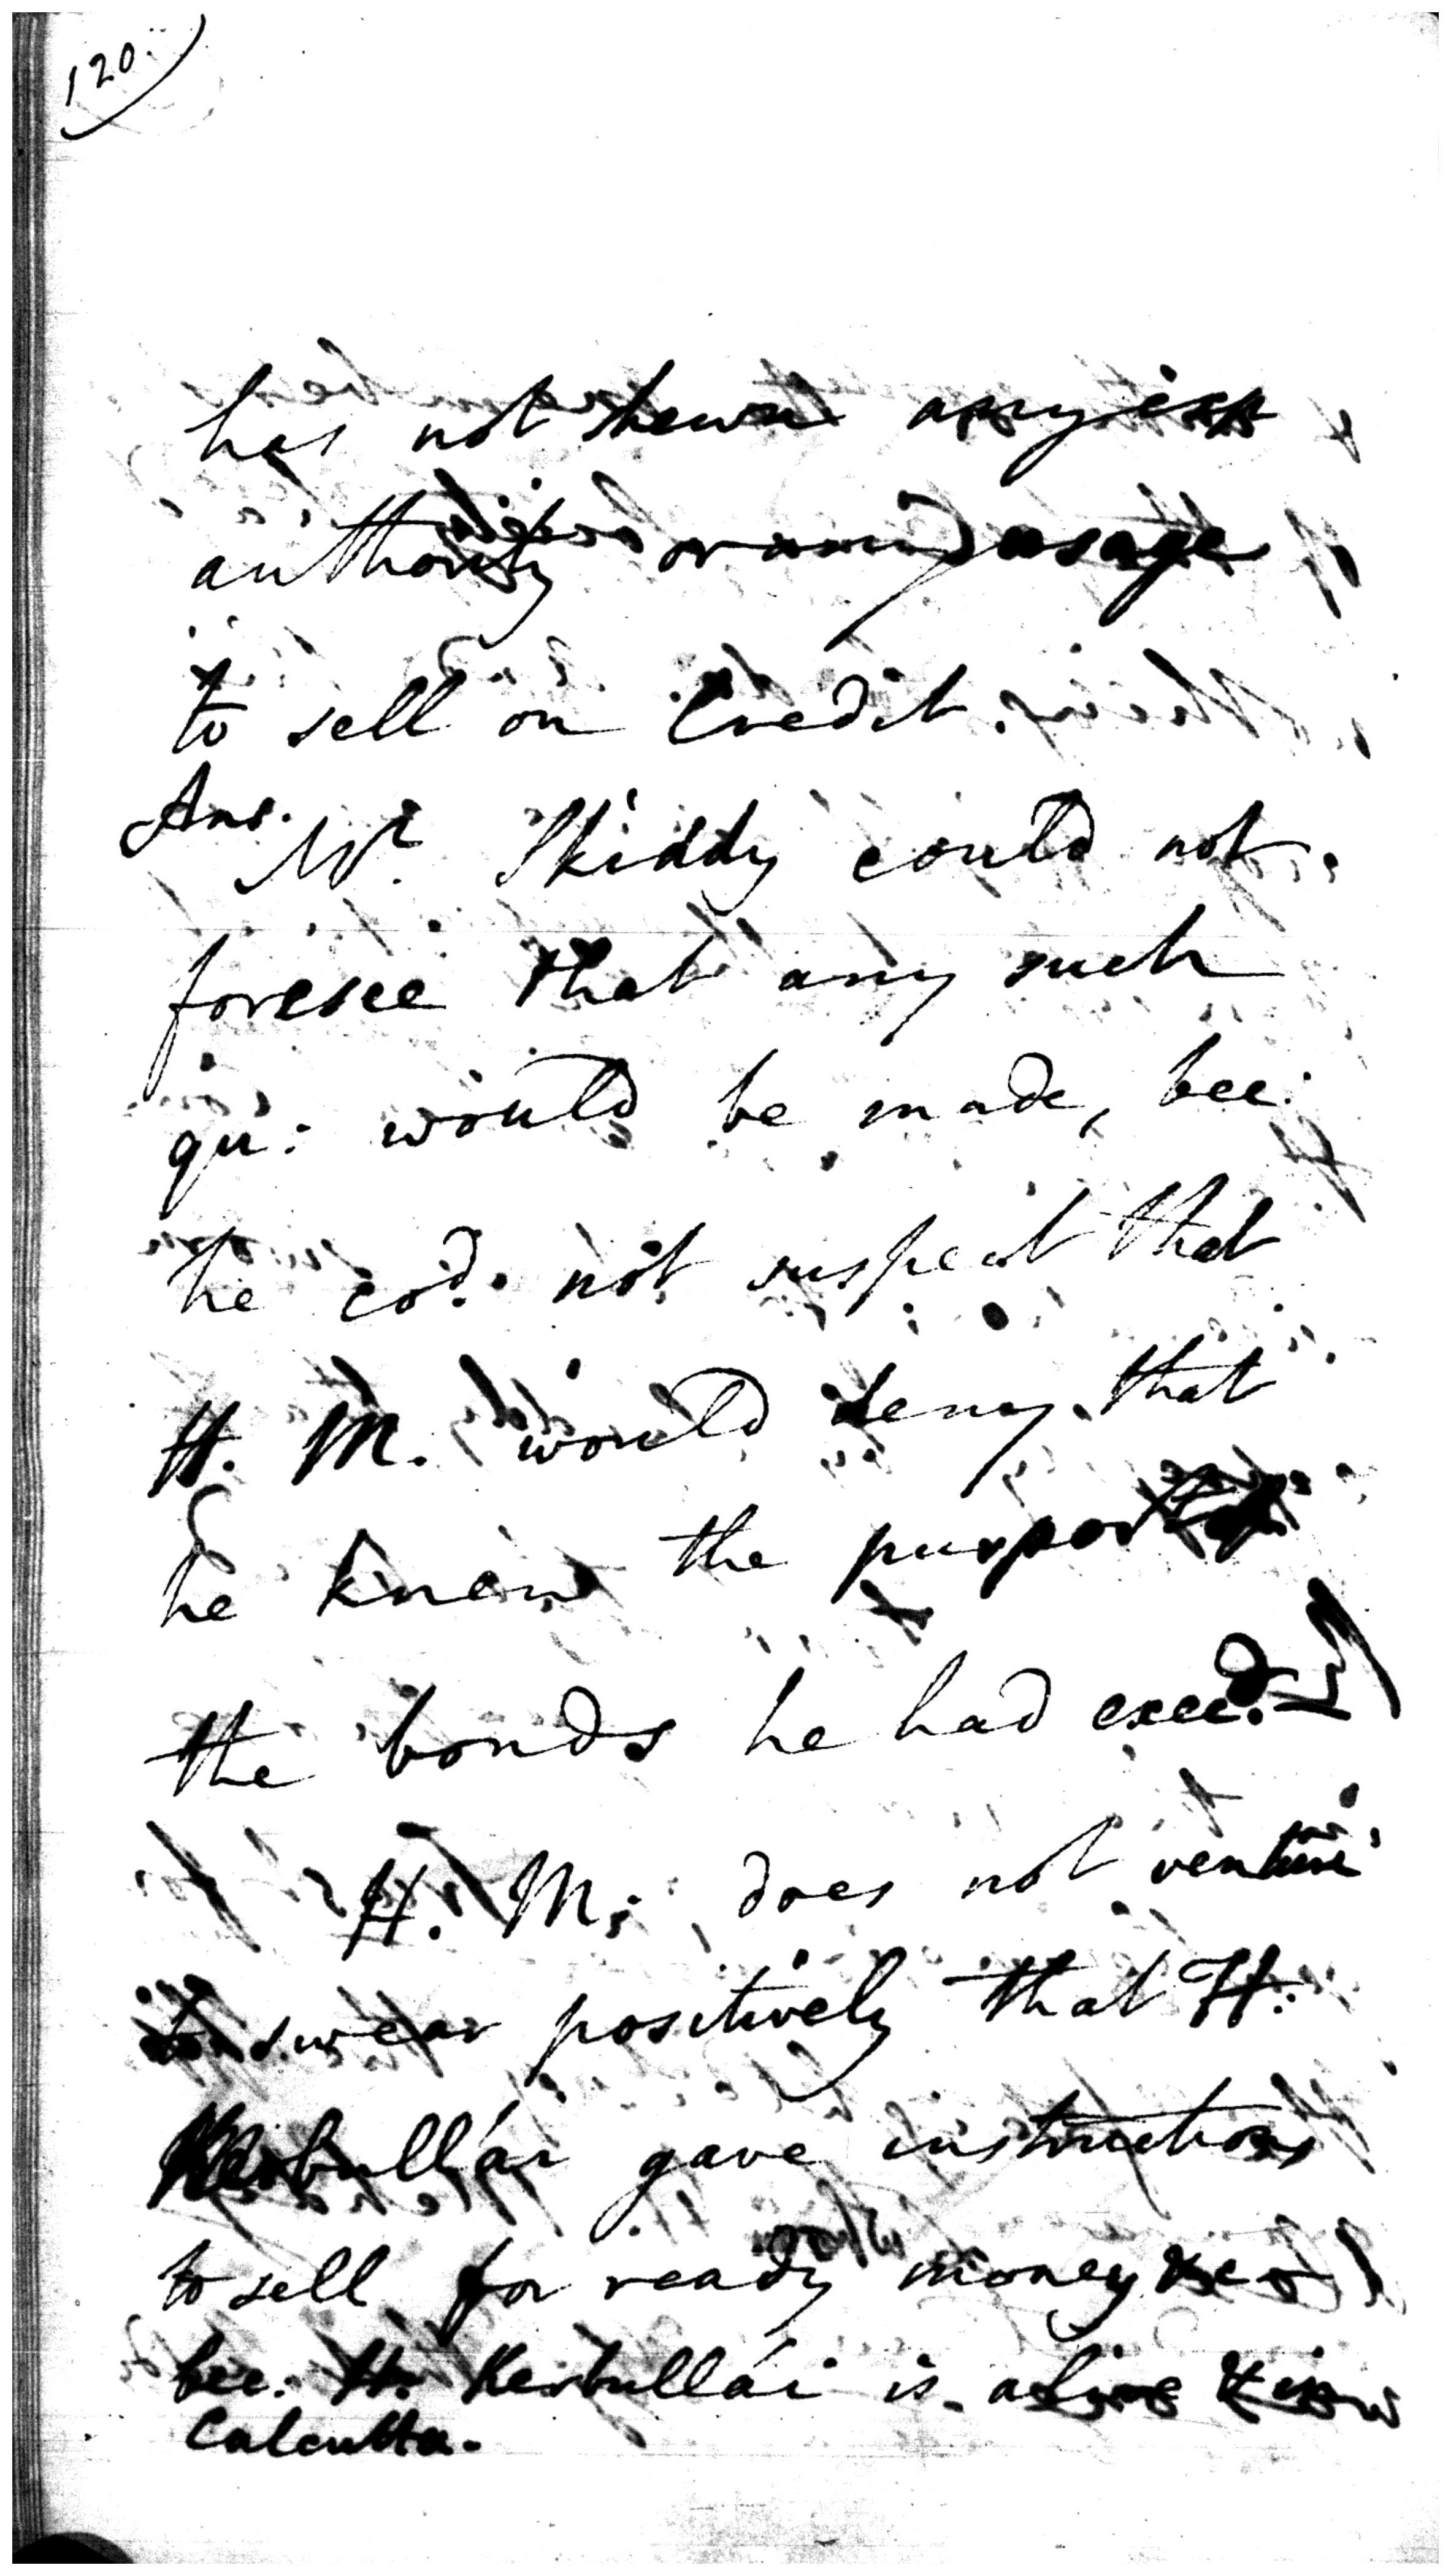 120
has not shewn any
authority or any usage
to sell on Credit.
Ans.
Mr. Skiddy could not
foresee that any such
qu: would be made, bec:
he cod. not suspect that
H. M. would deny that
he knew the purport of
the bonds he had execd.
H. M. does not venture
to swear positively that H.
Kerbullái gave instructions
to sell for ready money
bec: H. Kerbullái is alive & in
Calcutta.